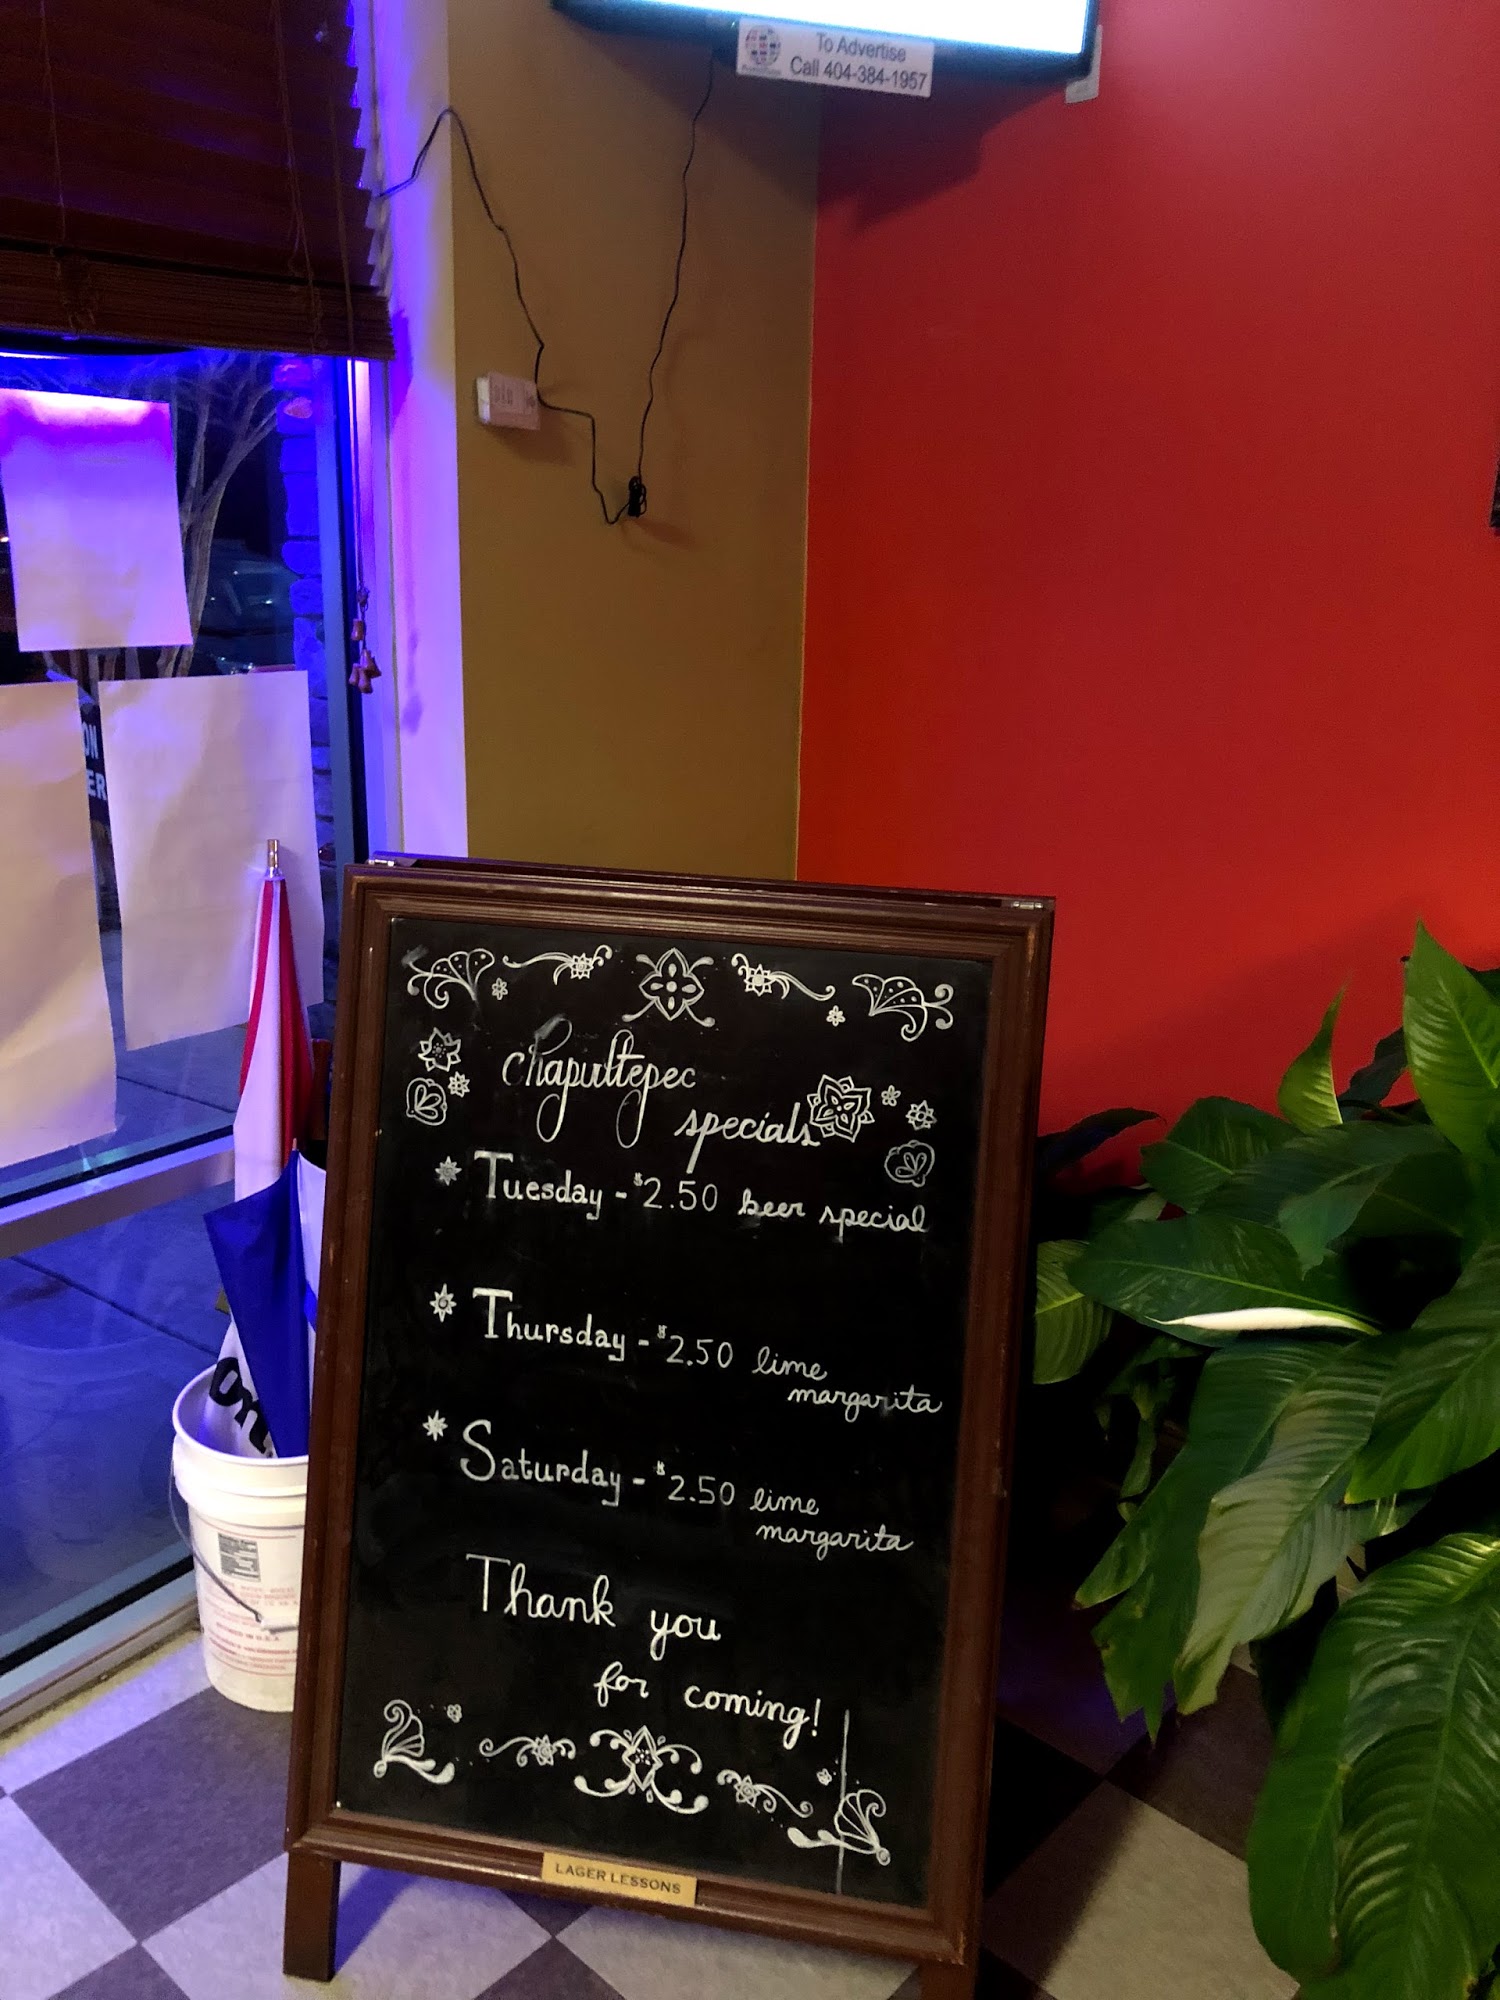 To Advertise
Call 404-384-1957
ON
ER
chapultepec
specials
Tuesday - $2.50 beer special
Thursday - $2.50 lime
margarita
Saturday - $2.50 lime
margarita
Thank you
for coming!
LAGER LESSONS